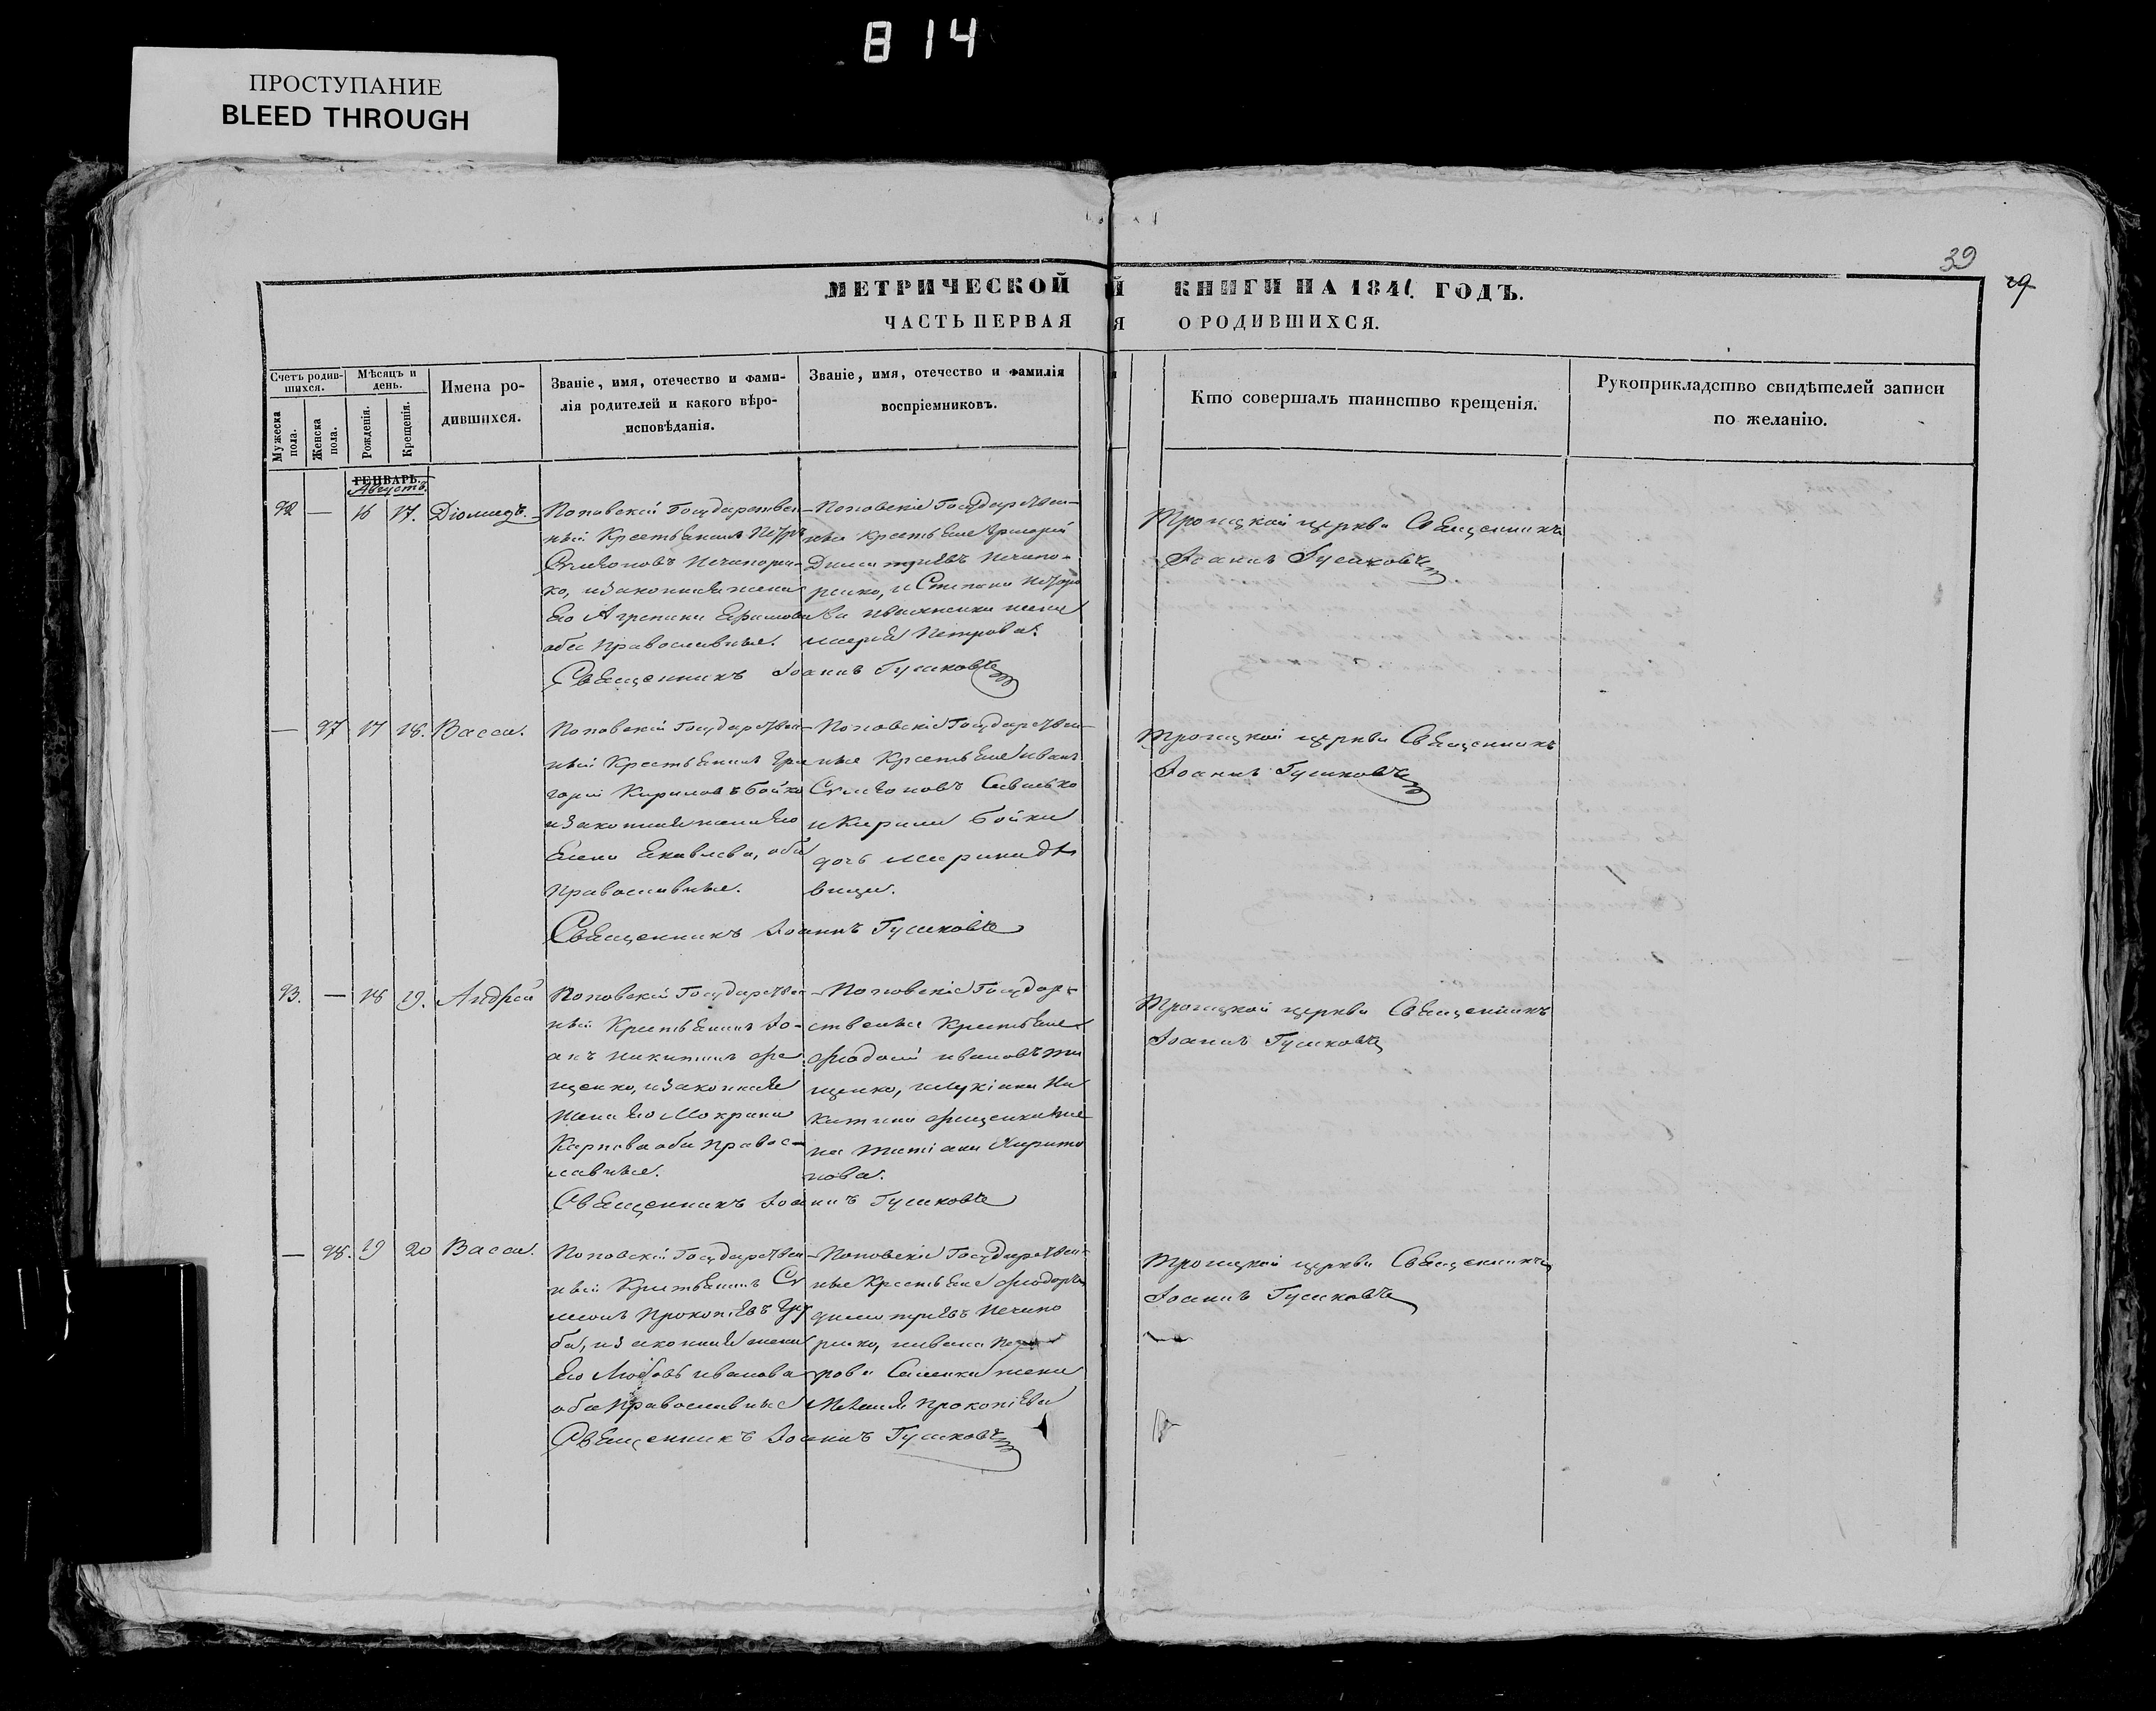 814
ПРОСТУПАНИЕ
BLEED THROUGH
39
МЕТРИЧЕСКОЙ Й КНИГИ НА 1841 ГОДЪ.
ЧАСТЬ ПЕРВАЯ Я О РОДИВШИХСЯ.
Счетъ родив-
шихся.
Мужеска пола.
Женска пола.
Мѣсяцъ и
день.
Рожденія.
Крещенія.
Имена ро-
дившихся.
Званіе, имя, отечество и фами-
лія родителей и какого вѣро-
исповѣданія.
Званіе, имя, отечество и фамилія
воспріемниковъ.
Кто совершалъ таинство крещенія.
Рукоприкладство свидѣтелей записи
по желанію.
ГЕНВАРЬ.
Августъ.
92 — 16 17. Діомидъ.
Поповскій Государствен-
ный Крестьянинъ Петръ
Симоновъ Нечипорен-
ко, и законная жена
его Агрепина Ефимова
оба православные.
Поповскіе Государствен-
ные Крестьяне Григорій
Димитріевъ Нечипо-
ренко, и Степана
жена
Марія Петрова.
Священникъ Іоаннъ Гулковъ
Троицкой церкви Священникъ
Іоаннъ Гулковъ
— 97 17 18. Васса.
Поповскій Государствен-
ный Крестьянинъ Гри
горій Кириловъ Бойко
и законная жена его
Елена Яковлева, оба
православные.
Поповскіе Государствен-
ные Крестьяне Иванъ
Симоновъ Савенко
и Кирила Бойки
дочь Марина дѣ
вица.
Священникъ Іоаннъ Гулковъ
Троицкой церкви Священникъ
Іоаннъ Гулковъ
93. — 18 19. Андрей
Поповскій Государствен
ный Крестьянинъ Іо-
анъ Никитинъ
щенко, и законная
жена его Мокрина
Карпова оба правос-
лавные.
Поповскіе Государ-
ственные Крестьяне
Ѳеодосій Ивановъ
щенко, и Лукіана Ни
китина же
на Татіана Харито
нова.
Священникъ Іоаннъ Гулковъ
Троицкой церкви Священникъ
Іоаннъ Гулковъ
— 98. 19 20 Васса.
Поповскій Государствен-
ный Крестьянинъ Си
меонъ Прокопіевъ Гру
ба, и законная жена
его Любовь Иванова
оба православные
Поповскіе Государствен-
ные Крестьяне Ѳеодоръ
Димитріевъ Нечипо
ренко, и Ивана Пет
рова жена
Прокопіева
Священникъ Іоаннъ Гулковъ
Троицкой церкви Священникъ
Іоаннъ Гулковъ